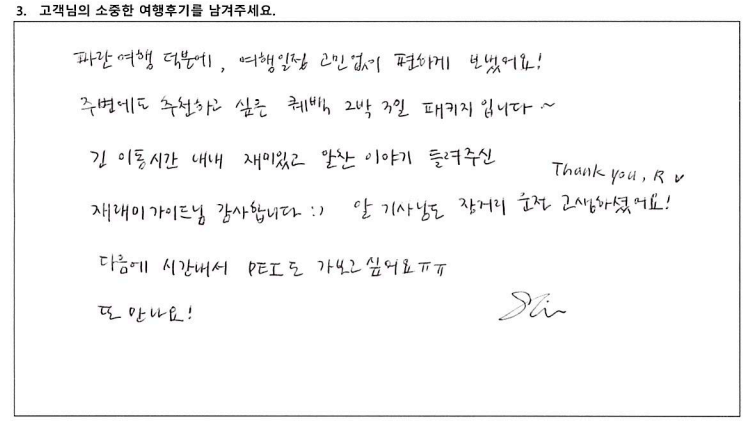 3. 고객님의 소중한 여행후기를 남겨주세요.
파란여행 덕분에, 여행일정 고민없이 편하게 보냈어요!
주변에도 추천하고 싶은 퀘백 2박 3일 패키지입니다~
긴 이동시간 내내 재미있고 알찬 이야기 들려주신
Thank you, R
재래미가이드님 감사합니다 :) 알 기사님도 장거리 운전 고생하셨어요!
다음에 시간내서 PEI도 가보고싶어요ㅠㅠ
또 만나요!